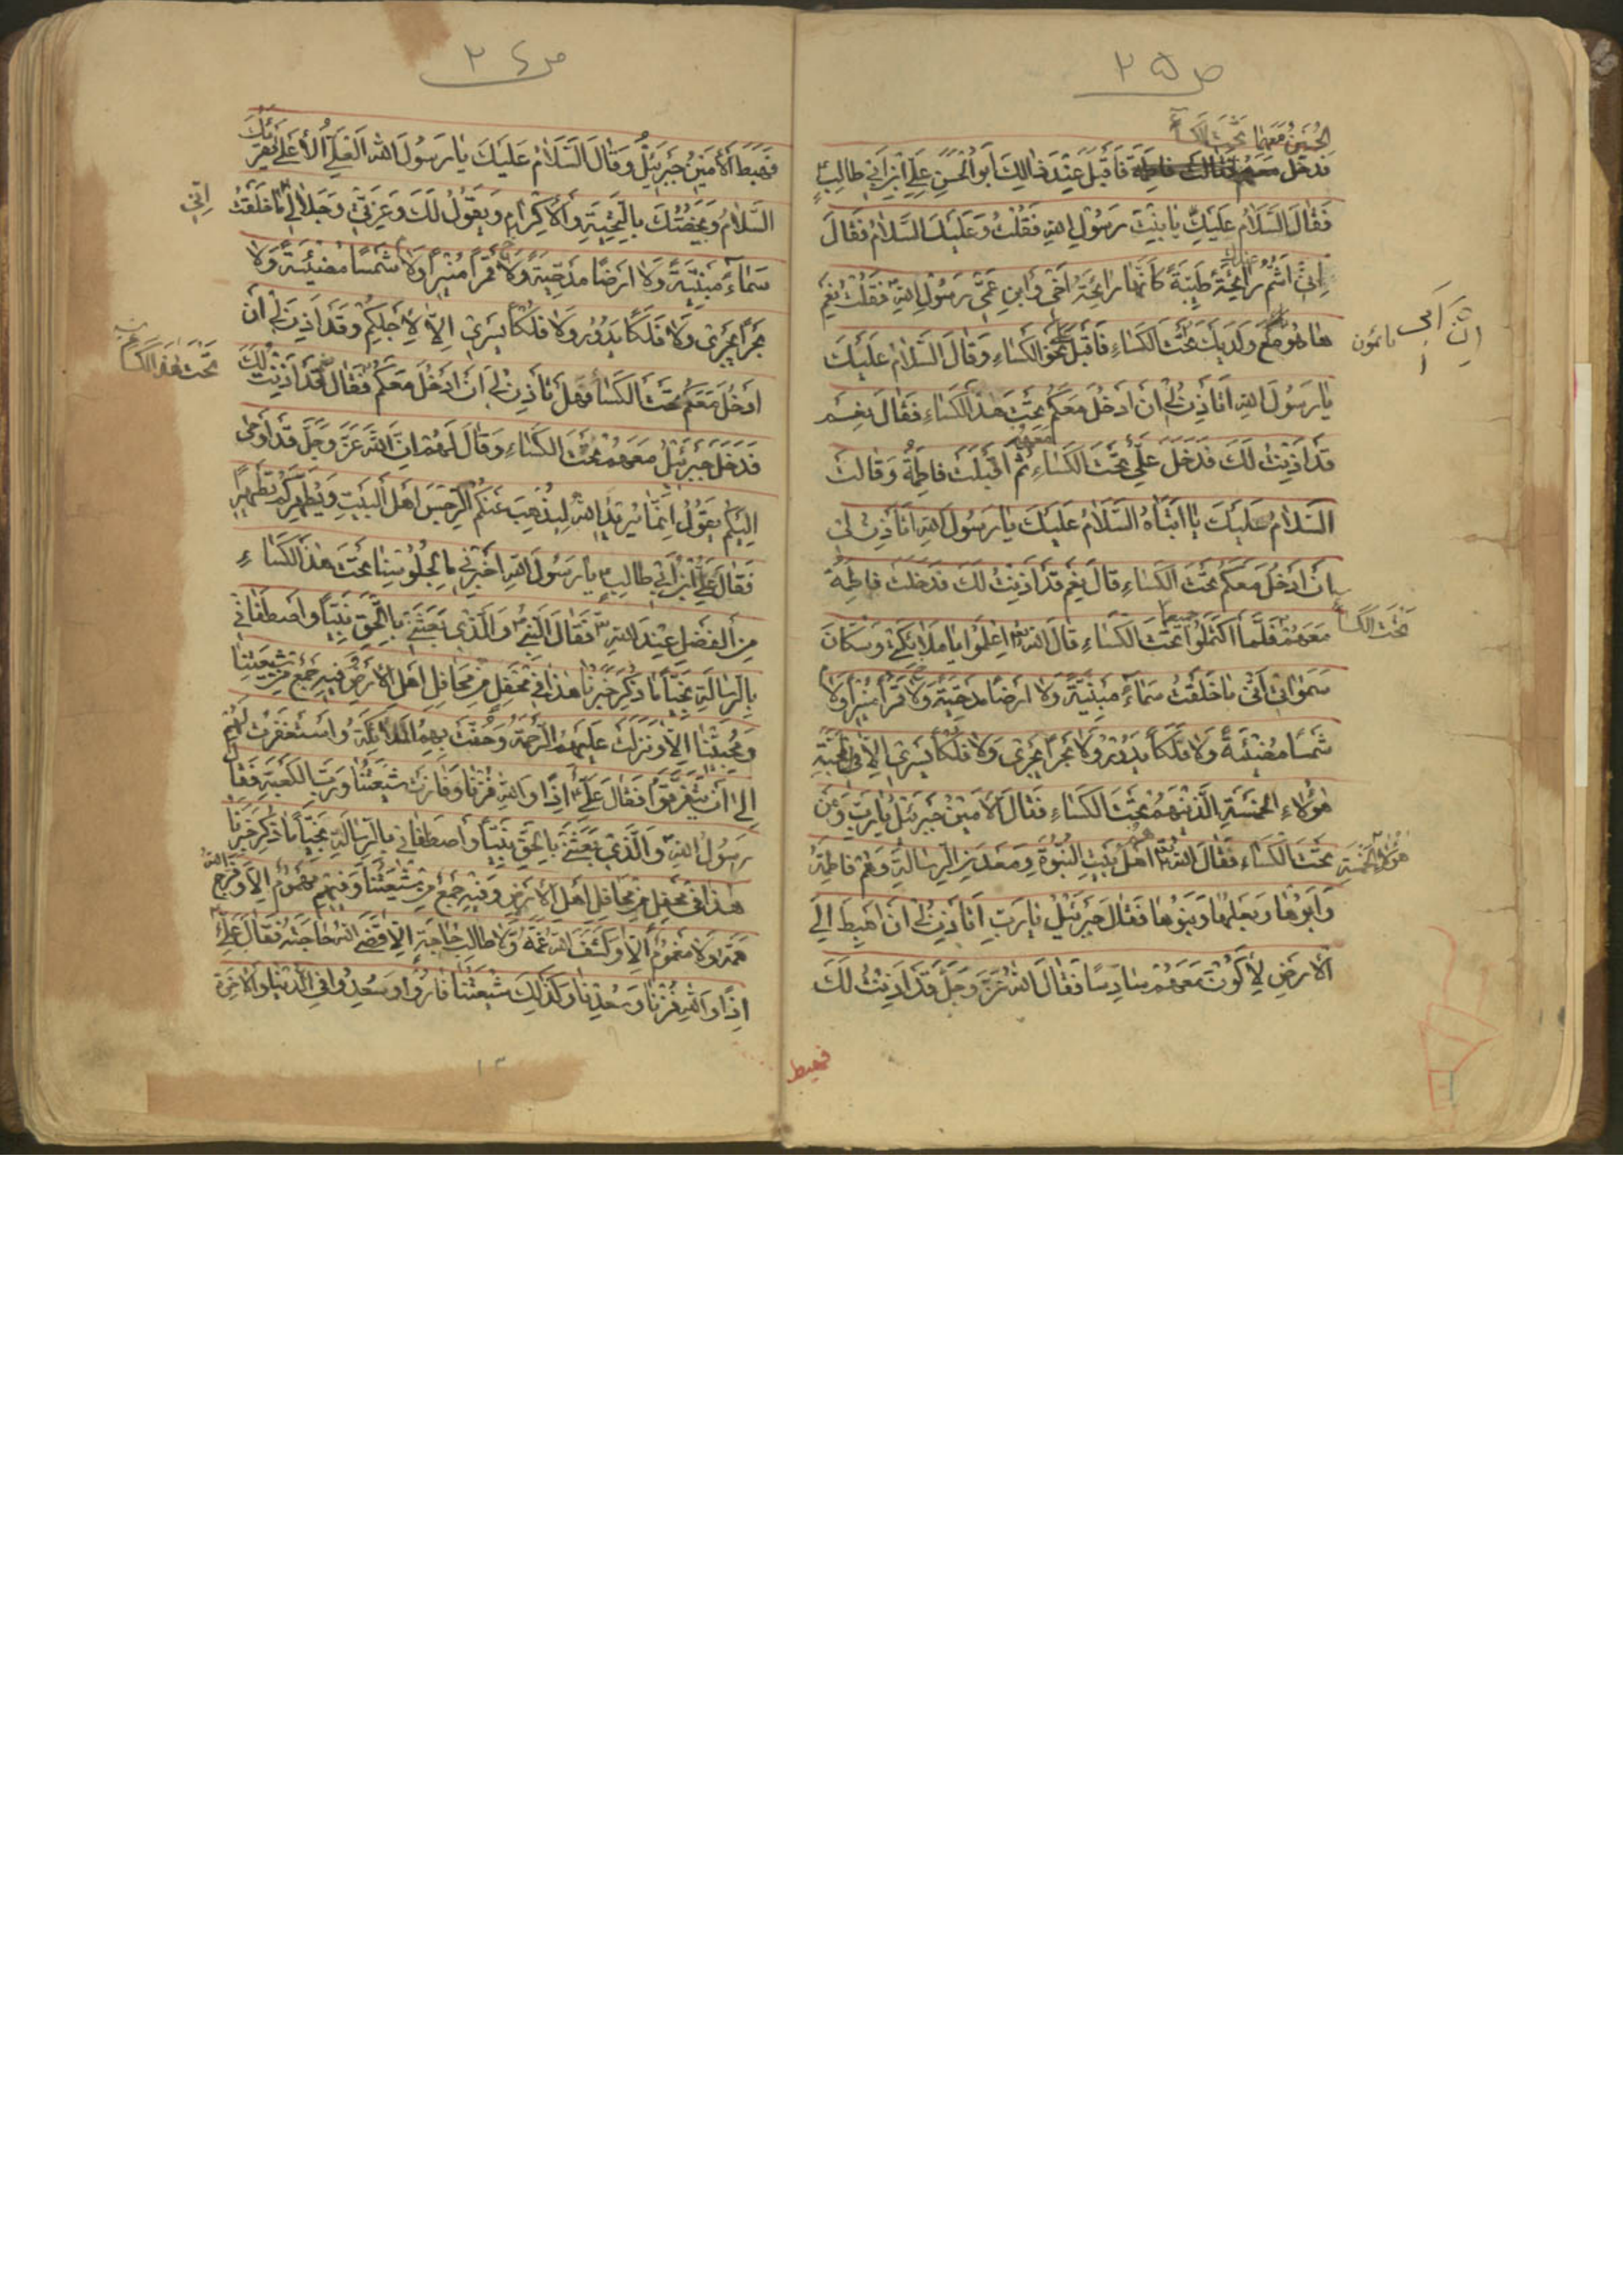 ص ٢٥
الحُسَيْنُ مَعَهُما تَحْتَ الكِسَاءِ
فَدَخَلَ مَعَهُم فَقَالَتْ فاطِمَة فَاَقْبَلَ عِنْدَ ذٰلِكَ اَبُو الْحَسَنِ عَلِيُّ ابْنُ اَبي طالِبٍ
فَقَالَ السَّلَامُ عَلَيْكِ يا بِنْتَ رَسُولِ اللهِ فَقُلْتُ وَعَلَيْكَ السَّلامُ فَقَالَ
اِنّي اَشُمُّ رائِحَةً طَيِّبَةً كَاَنَّها رائِحَةُ اَخي وَابْنِ عَمّي رَسُولِ اللهِ فَقُلْتُ نَعَمْ
ها هُوَ مَعَ وَلَدَيْكَ تَحْتَ الكِسَاءِ فَاَقْبَلَ عَلِيٌّ نَحْوَ الكِسَاءِ وَقَالَ السَّلامُ عَلَيْكَ
يا رَسُولَ اللهِ اَتَاْذَنُ لي اَنْ اَدْخُلَ مَعَكُمْ تَحْتَ هذَا الكِسَاءِ فَقَالَ نَعَمْ
قَدْ اَذِنْتُ لَكَ فَدَخَلَ عَلِيٌّ مَعَهُمْ تَحْتَ الكِسَاءِ ثُمَّ اَقْبَلَتْ فاطِمَةُ وَقالَتْ
السَّلامُ عَلَيْكَ يا اَبَتاهُ السَّلامُ عَلَيْكَ يا رَسُولَ اللهِ اَتَاْذَنُ لي
اَنْ اَدْخُلَ مَعَكُمْ تَحْتَ الكِسَاءِ قالَ نَعَمْ قَدْ اَذِنْتُ لَكِ فَدَخَلَتْ فاطِمَةُ
تَحْتَ الكِسَاءِ
مَعَهُمْ فَلَمَّا اكْتَمَلُوا جَميعاً تَحْتَ الكِسَاءِ قالَ اللهُ اعْلَمُوا يا مَلائِكَتي وَسُكّانَ
سَمٰواتي اَنّي ما خَلَقْتُ سَماءً مَبْنِيَّةً وَلا اَرْضًا مَدْحِيَّةً وَلا قَمَرًا مُنيرًا وَلا
شَمْسًا مُضيئَةً وَلا فَلَكًا يَدُورُ وَلا بَحْرًا يَجْري وَلا فُلْكًا يَسْري اِلّا في مَحَبَّةِ
هٰؤُلاءِ الخَمْسَةِ الَّذينَ هُمْ تَحْتَ الكِسَاءِ فَقَالَ الاَمينُ جَبْرَئيلُ يا رَبِّ وَمَنْ
هٰؤُلاءِ الخَمْسَةِ
تَحْتَ الكِسَاءِ فَقَالَ اللهُ هُمْ اَهْلُ بَيْتِ النُّبُوَّةِ وَمَعْدِنِ الرِّسالَةِ وَهُمْ فاطِمَةُ
وَاَبُوها وَبَعْلُها وَبَنُوها فَقَالَ جَبْرَئيلُ يا رَبِّ اَتَاْذَنُ لي اَنْ اَهْبِطَ اِلَى
الاَرْضِ لِاَكُونَ مَعَهُمْ سادِسًا فَقَالَ اللهُ عَزَّ وَجَلَّ قَدْ اَذِنْتُ لَكَ
فهبط
ص ٢٤
فَهَبَطَ الاَمينُ جَبْرَئيلُ وَقالَ السَّلَامُ عَلَيْكَ يا رَسُولَ اللهِ العَلِيُّ الاَعْلى يُقْرِئُكَ
السَّلامَ وَيَخُصُّكَ بِالتَّحِيَّةِ وَالاِكْرامِ وَيَقُولُ لَكَ وَعِزَّتي وَجَلالي اِنّي ما خَلَقْتُ
سَماءً مَبْنِيَّةً وَلا اَرْضًا مَدْحِيَّةً وَلا قَمَرًا مُنيرًا وَلا شَمْسًا مُضيئَةً وَلا
بَحْرًا يَجْري وَلا فَلَكًا يَدُورُ وَلا فُلْكًا يَسْري اِلّا لِاَجْلِكُمْ وَقَدْ اَذِنَ لي اَنْ
اَدْخُلَ مَعَكُمْ تَحْتَ الكِسَاءِ فَهَلْ تَاْذَنُ لي اَنْ اَدْخُلَ مَعَكُمْ فَقَالَ نَعَمْ قَدْ اَذِنْتُ لَكَ
تَحْتَ هذَا الكِسَاءِ
فَدَخَلَ جَبْرَئيلُ مَعَهُمْ تَحْتَ الكِسَاءِ وَقالَ لَهُمْ اِنَّ اللهَ عَزَّ وَجَلَّ قَدْ اَوْحى
اِلَيْكُمْ يَقُولُ اِنَّما يُريدُ اللهُ لِيُذْهِبَ عَنْكُمُ الرِّجْسَ اَهْلَ البَيْتِ وَيُطَهِّرَكُمْ تَطْهيرًا
فَقالَ عَلِيُّ ابْنُ اَبي طالِبٍ يا رَسُولَ اللهِ اَخْبِرْني ما لِجُلُوسِنا تَحْتَ هذَا الكِسَاءِ
مِنَ الفَضْلِ عِنْدَ اللهِ فَقَالَ النَّبِيُّ وَالَّذي بَعَثَني بِالحَقِّ نَبِيًّا وَاصْطَفاني
بِالرِّسالَةِ نَجِيًّا ما ذُكِرَ خَبَرُنا هذا في مَحْفِلٍ مِنْ مَحافِلِ اَهْلِ الاَرْضِ فيهِ جَمْعٌ مِنْ شيعَتِنا
وَمُحِبّينا اِلّا وَنَزَلَتْ عَلَيْهِمُ الرَّحْمَةُ وَحَفَّتْ بِهِمُ المَلائِكَةُ وَاسْتَغْفَرَتْ لَهُمْ
اِلى اَنْ يَتَفَرَّقُوا فَقالَ عَلِيٌّ اِذًا وَاللهِ فُزْنا وَفازَتْ شيعَتُنا وَرَبِّ الكَعْبَةِ فَقالَ
رَسُولُ اللهِ وَالَّذي بَعَثَني بِالحَقِّ نَبِيًّا وَاصْطَفاني بِالرِّسالَةِ نَجِيًّا ما ذُكِرَ خَبَرُنا
هذا في مَحْفِلٍ مِنْ مَحافِلِ اَهْلِ الاَرْضِ وَفيهِ جَمْعٌ مِنْ شيعَتِنا وَفيهِمْ مَهْمُومٌ اِلّا وَفَرَّجَ اللهُ
هَمَّهُ وَلا مَغْمُومٌ اِلّا وَكَشَفَ اللهُ غَمَّهُ وَلا طالِبُ حاجَةٍ اِلّا قَضَى اللهُ حاجَتَهُ فَقالَ عَلِيٌّ
اِذًا وَاللهِ فُزْنا وَسُعِدْنا وَكَذٰلِكَ شيعَتُنا فازُوا وَسُعِدُوا في الدُّنْيا وَالآخِرَةِ